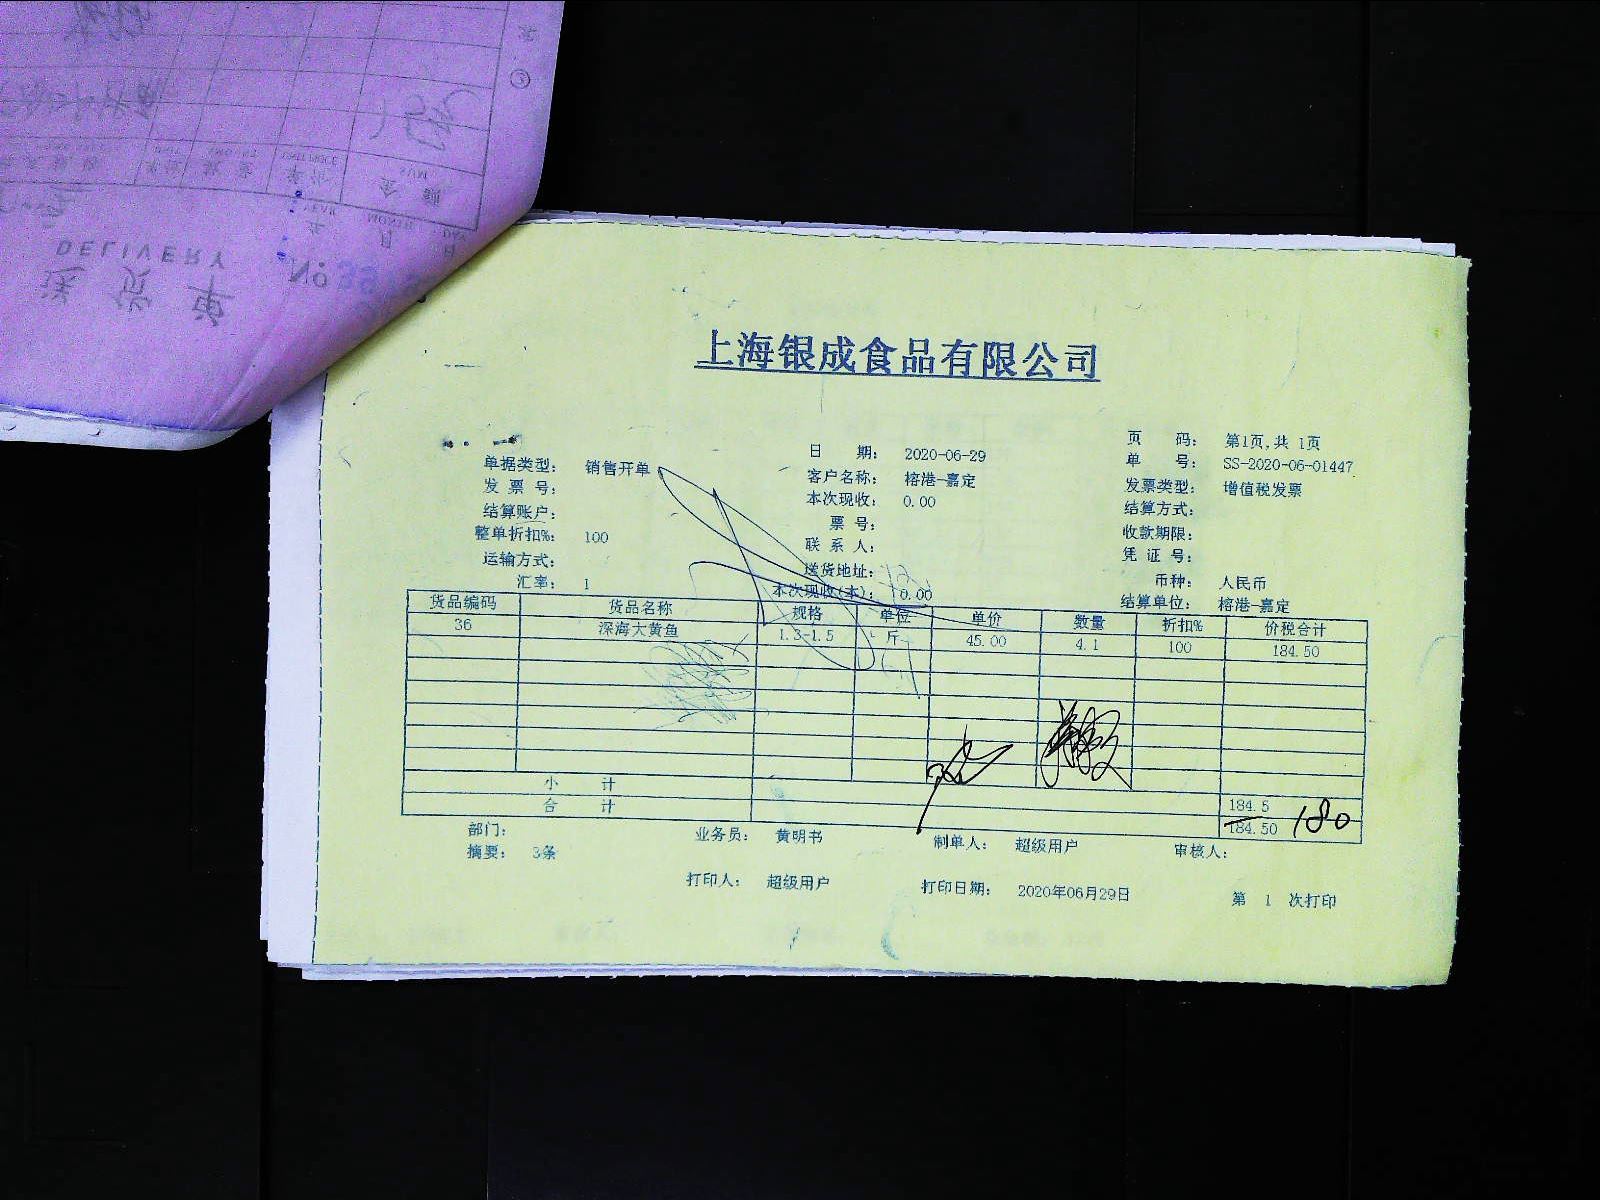 送货单
DELIVERY
No
上海银成食品有限公司
单据类型: 销售开单 日 期: 2020-06-29 页 码: 第1页,共 1页
发 票 号: 客户名称: 榕港-嘉定 单 号: SS-2020-06-01447
结算账户: 本次现收: 0.00 发票类型: 增值税发票
整单折扣%: 100 票 号: 结算方式:
运输方式: 联 系 人: 收款期限:
汇率: 1 送货地址: 凭 证 号:
本次现收(本): 0.00 币种: 人民币
结算单位: 榕港-嘉定
货品编码 货品名称 规格 单位 单价 数量 折扣% 价税合计
36 深海大黄鱼 1.3-1.5 斤 45.00 4.1 100 184.50
小 计 184.5
合 计 184.50 180
部门: 业务员: 黄明书 制单人: 超级用户 审核人:
摘要: 3条
打印人: 超级用户 打印日期: 2020年06月29日 第 1 次打印